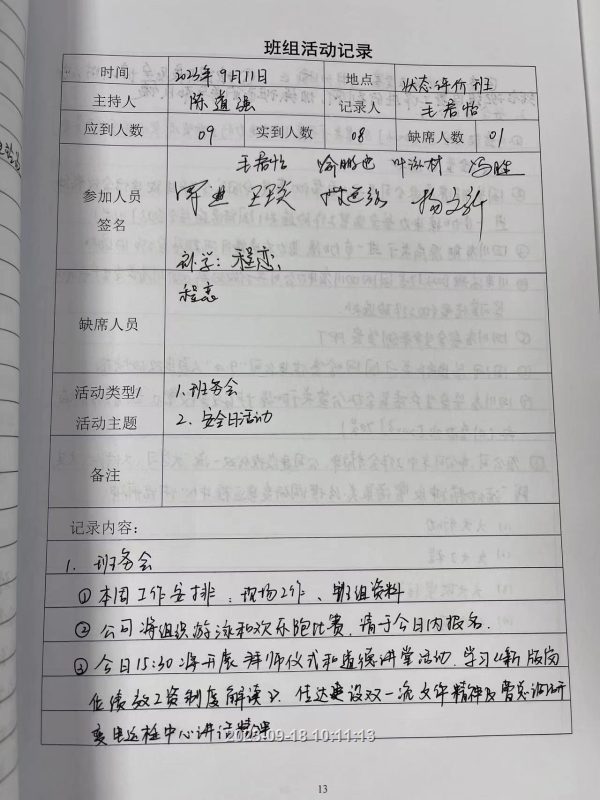 班组活动记录
时间 2023年9月11日 地点 状态评价班
主持人 陈道强 记录人 王君怡
应到人数 09 实到人数 08 缺席人数 01
王君怡
参加人员
签名
补学：程恋
程恋
缺席人员
活动类型/ 1.班务会
活动主题 2.安全日活动
备注
记录内容:
1. 班务会
①本周工作安排：现场工作、班组资料
②公司将组织游泳和欢乐跑比赛,请于今日内报名.
③今日15:30将开展拜师仪式和道德讲堂活动.学习《新版岗
位绩效工资制度解读》、传达建设双一流文件精神及曹总调研
变电运检中心讲话精神
2023-09-18 10:44:43
13